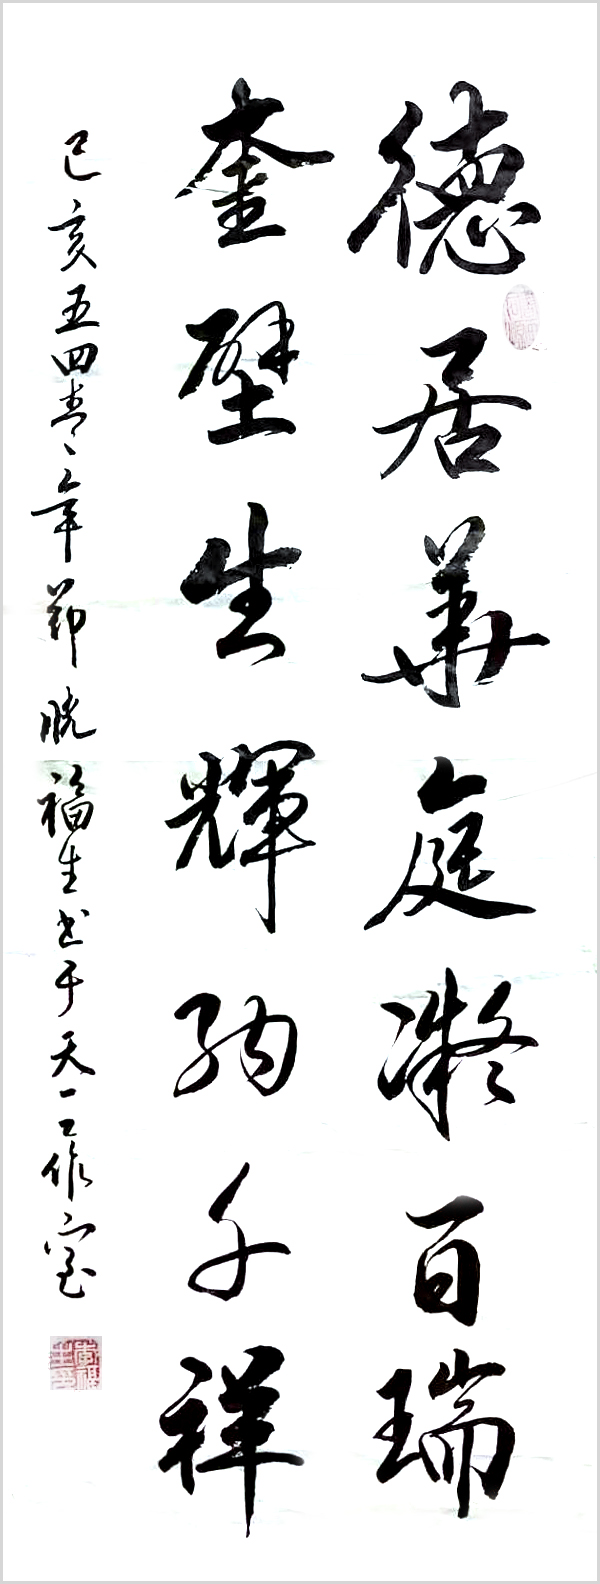 德居華庭凝百瑞
奎壁生輝納千祥
己亥五四青年節晓福生书于天一工作室